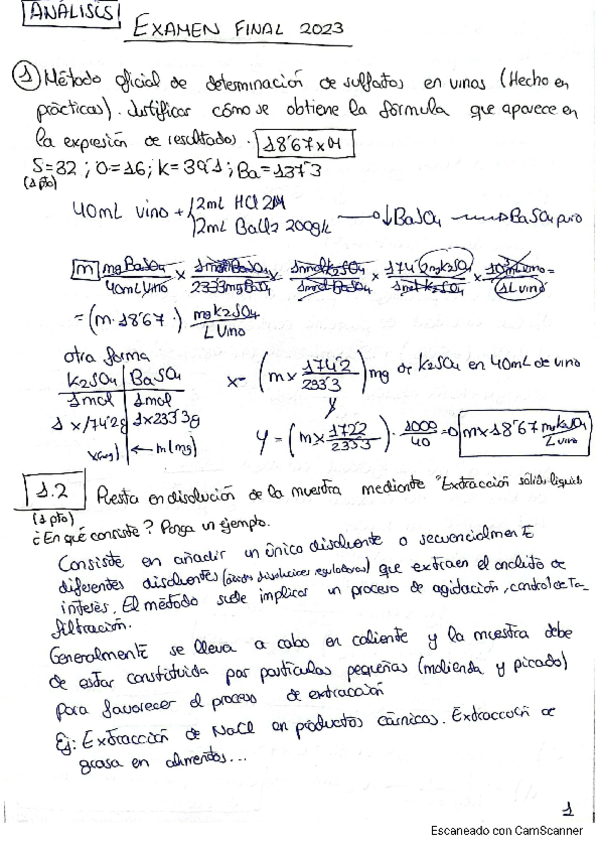 ANÁLISIS
EXAMEN FINAL 2023
① Método oficial de determinación de sulfatos en vinos (Hecho en
prácticas). Justificar cómo se obtiene la fórmula que aparece en
la expresión de resultados. 18'67 x M
S=32 ; O=16; K=39'1; Ba=137'3
(1 pto)
40mL vino + 2mL HCl 2M
2mL BaCl2 200g/L → ↓BaSO4 → BaSO4 puro
m mgBaSO4 / 40mL vino x 1mmolBaSO4 / 233'3mgBaSO4 x 1mmolK2SO4 / 1mmolBaSO4 x 174'2mgK2SO4 / 1mmolK2SO4 x 10³mL vino / 1L vino =
= (m. 18'67 ) . mgK2SO4 / L Vino
otra forma
K2SO4 | BaSO4
1mol | 1mol
1 x 174'2g | 1x233'3g
x(mg) | ← m(mg)
x= (m x 174'2 / 233'3) mg de K2SO4 en 40mL de vino
y = (m x 172'2 / 233'3) . 1000 / 40 = m x 18'67 mgK2SO4 / L vino
1.2 Puesta en disolución de la muestra mediante "Extracción sólido líquido
(1 pto)
¿En qué consiste? Ponga un ejemplo.
Consiste en añadir un único disolvente o secuencialmente
diferentes disolventes (ácidos disoluciones reguladoras) que extraen el analito de
interés. El método suele implicar un proceso de agitación, control de Ta
filtración.
Generalmente se lleva a cabo en caliente y la muestra debe
de estar constituida por partículas pequeñas (molienda y picado)
para favorecer el proceso de extracción
Ej: Extracción de NaCl en productos cárnicos. Extracción de
grasa en alimentos...
1
Escaneado con CamScanner